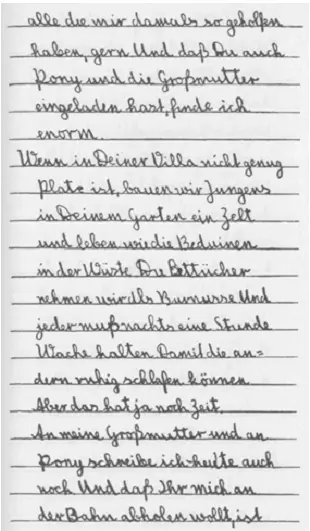 alle die mir damals so geholfen
haben, gern Und daß Du auch
Pony und die Großmutter
eingeladen hast, finde ich
enorm.
Wenn in Deiner Villa nicht genug
Platz ist, bauen wir Jungens
in Deinem Garten ein Zelt
und leben wie die Beduinen
in der Wüste Die Bettücher
nehmen wir als Burnusse Und
jeder muß nachts eine Stunde
Wache halten Damit die an=
dern ruhig schlafen können
Aber das hat ja noch Zeit.
An meine Großmutter und an
Pony schreibe ich heute auch
noch Und daß Ihr mich an
der Bahn abholen wollt ist